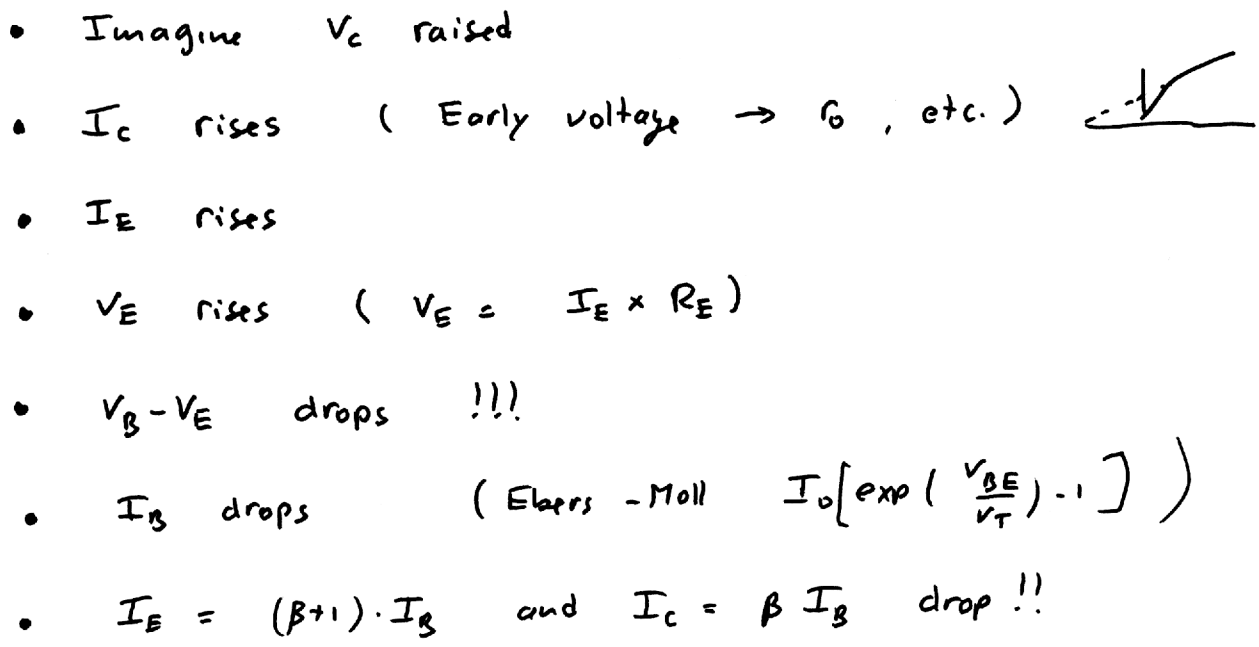 • Imagine Vc raised
• Ic rises ( Early voltage → ro , etc. )
• IE rises
• VE rises ( VE = IE × RE )
• VB - VE drops !!!
• IB drops ( Ebers - Moll Io[exp ( VBE/VT ) - 1 ] )
• IE = (β+1) · IB and Ic = β IB drop !!